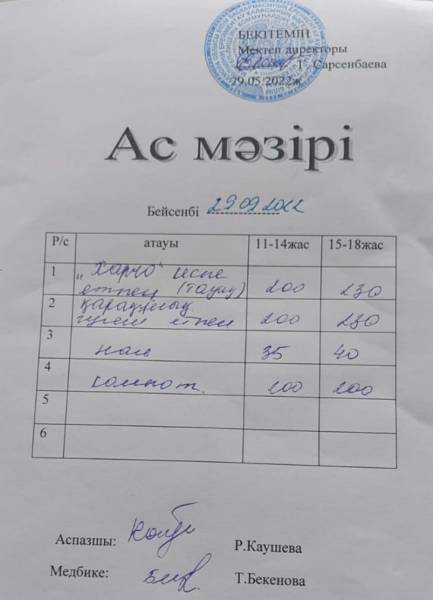 БЕКІТЕМІН
Мектеп директоры
Т. Сарсенбаева
29.05.2022ж
Ас мәзірі
Бейсенбі 29 09 2022
Р/с атауы 11-14жас 15-18жас
1 „Харчо"
етпен (тауық) 200 230
2 қарақұмық
гуляш етпен 200 230
3 нан 35 40
4 компот. 200 200
5
6
Аспазшы: Р.Каушева
Медбике: Т.Бекенова